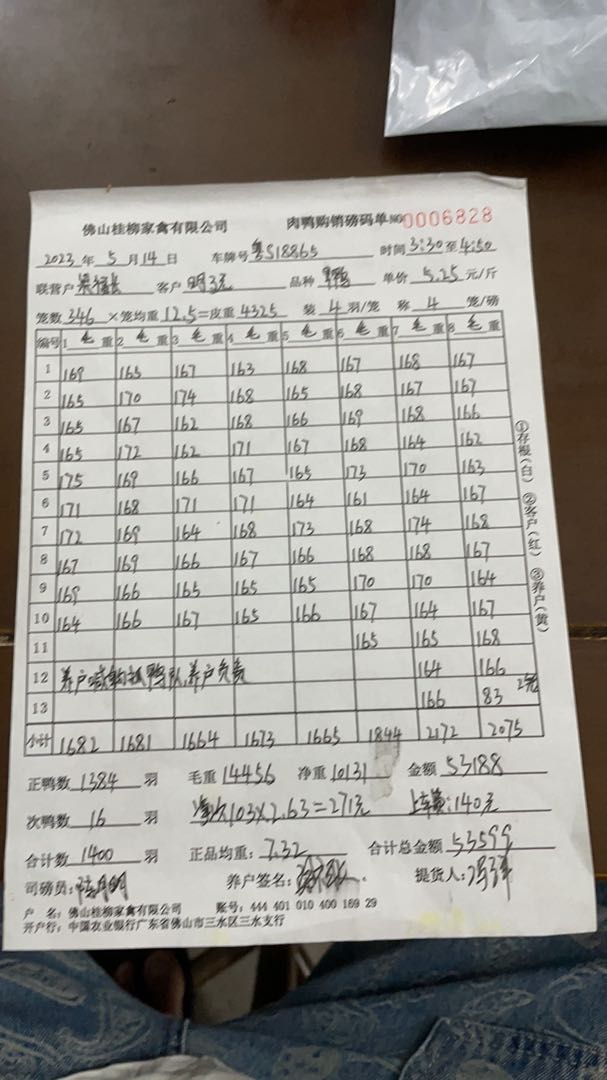 佛山桂柳家禽有限公司 肉鸭购销磅码单 NO 0006828
2023 年 5 月 14 日 车牌号 粤S18865 时间 3:30 至 4:50
联营户 客户 品种 单价 5.25 元/斤
笼数 346 ×笼均重 12.5 =皮重 4325 装 4 羽/笼 称 4 笼/磅
编号 1 毛重 2 毛重 3 毛重 4 毛重 5 毛重 6 毛重 7 毛重 8 毛重
1 169 165 167 163 168 167 168 167
2 165 170 174 168 165 168 167 167
3 165 167 162 168 166 169 168 166
4 165 172 162 171 167 168 164 162
5 175 169 166 167 165 173 170 163
6 171 168 171 171 164 161 164 167
7 172 169 164 168 173 168 174 168
8 167 169 166 167 166 168 168 167
9 169 166 165 165 165 170 170 164
10 164 166 167 165 166 167 164 167
11 165 165 168
12 养户喊 抓鸭队,养户负责 164 166
13 166 83 2笼
小计 1682 1681 1664 1673 1665 1844 2172 2075
正鸭数 1384 羽 毛重 14456 净重 10131 金额 53188
次鸭数 16 羽 净重103×2.63=271元 上车费:140元
合计数 1400 羽 正品均重: 7.32 合计总金额 53599
司磅员: 养户签名: 提货人:
户 名: 佛山桂柳家禽有限公司 账号: 444 401 010 400 169 29
开户行: 中国农业银行广东省佛山市三水区三水支行
①存根(白) ②客户(红) ③养户(黄)